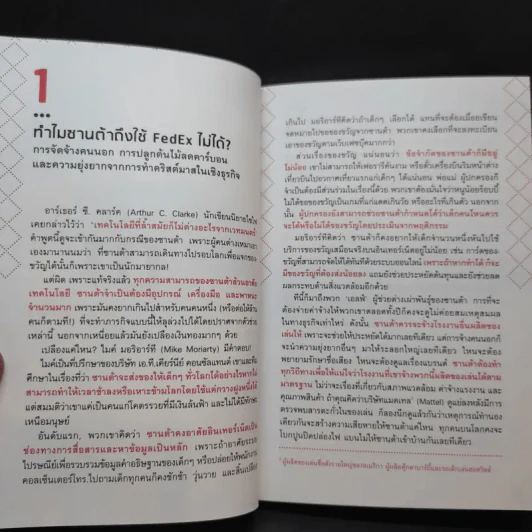 1
ทำไมซานต้าถึงใช้ FedEx ไม่ได้?
การจัดจ้างคนนอก การปลูกต้นไม้ลดคาร์บอน
และความยุ่งยากจากการทำคริสต์มาสในเชิงธุรกิจ
อาร์เธอร์ ซี. คลาร์ค (Arthur C. Clarke) นักเขียนนิยายวิทย์
เคยกล่าวไว้ว่า "เทคโนโลยีที่ล้ำสมัยก็ไม่ต่างอะไรจากเวทมนตร์
คำพูดนี้ดูจะเข้ากันมากกับกรณีของซานต้า เพราะผู้คนต่างเหมาเอา
เองมานานนมว่า ที่ซานต้าสามารถเดินทางไปรอบโลกเพื่อแจกของ
ขวัญได้นั้นก็เพราะเขาเป็นนักมายากล!
แต่ผิด เพราะที่จริงแล้ว ทุกความสามารถของซานต้าล้วนอาศัย
เทคโนโลยี ซานต้าจำเป็นต้องมีอุปกรณ์ เครื่องมือ และพาหนะ
จำนวนมาก เพราะมันคงยากเกินไปสำหรับคนคนหนึ่ง (หรือต่อให้ล้าน
คนก็ตามที!) ที่จะทำภารกิจแบบนี้ให้ลุล่วงไปได้โดยปราศจากตัวช่วย
เหล่านี้ นอกจากเหนื่อยแล้วมันยังเปลืองเงินทองมากๆ ด้วย
เปลืองแค่ไหน? ไมค์ มอริอาร์ที (Mike Moriarty) มีคำตอบ!
ไมค์เป็นที่ปรึกษาของบริษัท เอ.ที.เคียร์นีย์ คอนซัลแทนต์ เขาและทีม
ศึกษาในเรื่องที่ว่า ซานต้าจะส่งของให้เด็กๆ ทั่วโลกได้อย่างไรหากไม่
สามารถทำให้เวลาช้าลงหรือเหาะข้ามโลกโดยใช้แค่กวางฝูงหนึ่งได้
แต่สมมติว่าแค่เป็นคนแก่โคตรรวยที่มีเงินล้นฟ้า และไม่ได้มีทักษะ
เหนือมนุษย์
อันดับแรก, พวกเขาคิดว่า ซานต้าคงอาศัยอินเทอร์เน็ตเป็น
ช่องทางการสื่อสารและหาข้อมูลเป็นหลัก เพราะถ้าอาศัยระบบ
ไปรษณีย์เพื่อรวบรวมข้อมูลคำอธิษฐานของเด็กๆ หรือปล่อยให้พนักงาน
คอลเซ็นเตอร์โทร.ไปถามเด็กทุกคนก็คงชักช้า วุ่นวาย และสิ้นเปลือง
เกินไป มอริอาร์ทีคิดว่าถ้าเด็กๆ เลือกได้ แทนที่จะต้องเมื่อยเขียน
จดหมายไปขอของขวัญจากซานต้า พวกเขาคงเลือกที่จะลงทะเบียน
เอาของขวัญตามเว็บเฟซบุ๊คมากกว่า
ส่วนเรื่องของขวัญ แน่นอนว่า ข้อจำกัดของซานต้าก็มีอยู่
ไม่น้อย เขาไม่สามารถให้เฟอรารีคันงาม หรือตั๋วเครื่องบินริมหน้าต่าง
เที่ยวบินไปอวกาศเที่ยวแรกแก่เด็กๆ ได้แน่นอน พ่อแม่ ผู้ปกครองก็
จำเป็นต้องมีส่วนร่วมในเรื่องนี้ด้วย พวกเขาต้องมั่นใจว่าหนูน้อยร็อบบี้
ไม่ได้ขอของขวัญเป็นเกมที่แก่แดดเกินวัย หรืออะไรที่เกินตัว นอกจาก
นั้น ผู้ปกครองยังสามารถช่วยซานต้ากำหนดได้ว่าเด็กคนไหนควร
จะได้หรือไม่ได้ของขวัญโดยประเมินจากพฤติกรรม
มอริอาร์ทีคิดว่า ซานต้าก็คงอยากให้เด็กจำนวนหนึ่งหันไปใช้
บริการของขวัญเสมือนจริงบนอินเทอร์เน็ตดูบ้างเหมือนกัน การ์ด
ของขวัญก็สามารถจัดให้ได้ทันทีด้วยระบบออนไลน์ เพราะถ้าหากทำได้ ก็จะ
มีของขวัญที่ต้องส่งน้อยลง แถมยังช่วยประหยัดต้นทุนและยังช่วยลด
ผลกระทบด้านสิ่งแวดล้อมอีกด้วย
ทีนี้ก็มาถึงพวก "เอลฟ์" ผู้ช่วยต่างเผ่าพันธุ์ของซานต้า การที่จะ
ต้องจ่ายค่าจ้างให้พวกเขาตลอดทั้งปีก็คงจะดูไม่ค่อยสมเหตุสมผล
ในทางธุรกิจเท่าไหร่ ดังนั้น ซานต้าควรจะจ้างโรงงานอื่นผลิตของ
เล่นให้ เพราะจะช่วยให้ประหยัดได้มากเลยทีเดียว แต่การจ้างคนนอกก็
จะนำความยุ่งยากอื่นๆ มาให้ระลอกใหญ่เลยทีเดียว ไหนจะต้อง
พยายามรักษาชื่อเสียง ไหนจะต้องสร้างแบรนด์ ซานต้าต้องทำ
ทุกวิถีทางเพื่อให้แน่ใจว่าโรงงานที่เขาจ้างพวกนี้ผลิตของเล่นได้ตาม
มาตรฐาน ไม่ว่าจะเรื่องที่เกี่ยวกับสภาพแวดล้อม ค่าจ้างแรงงาน และ
คุณภาพสินค้า ถ้าคุณคิดว่าบริษัทแมตเทล¹ (Mattel) ดูแย่ลงหลังมีการ
ตรวจพบสารตะกั่วในของเล่น ก็ลองนึกดูแล้วกันว่าเหตุการณ์ทำนอง
เดียวกันจะสร้างความเสียหายให้ซานต้าแค่ไหน ทุกคนบนโลกคงจะ
โบกปูนปิดปล่องไฟ แบนไม่ให้ซานต้าเข้าบ้านกันเลยทีเดียว